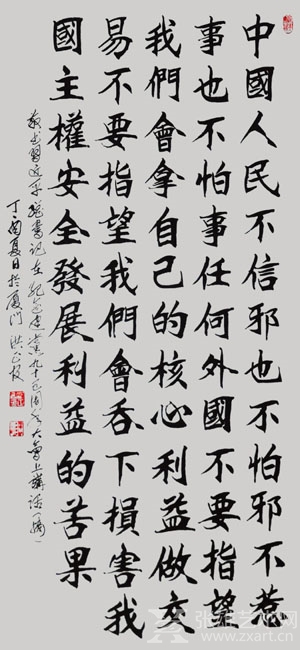 中國人民不信邪也不怕邪不惹
事也不怕事任何外國不要指望
我們會拿自己的核心利益做交
易不要指望我們會吞下損害我
國主權安全發展利益的苦果
敬书習近平總書記在紀念建黨九十五周年大會上講话(摘)
丁酉夏日於厦门 洪
张雄艺术网
www.zxart.cn